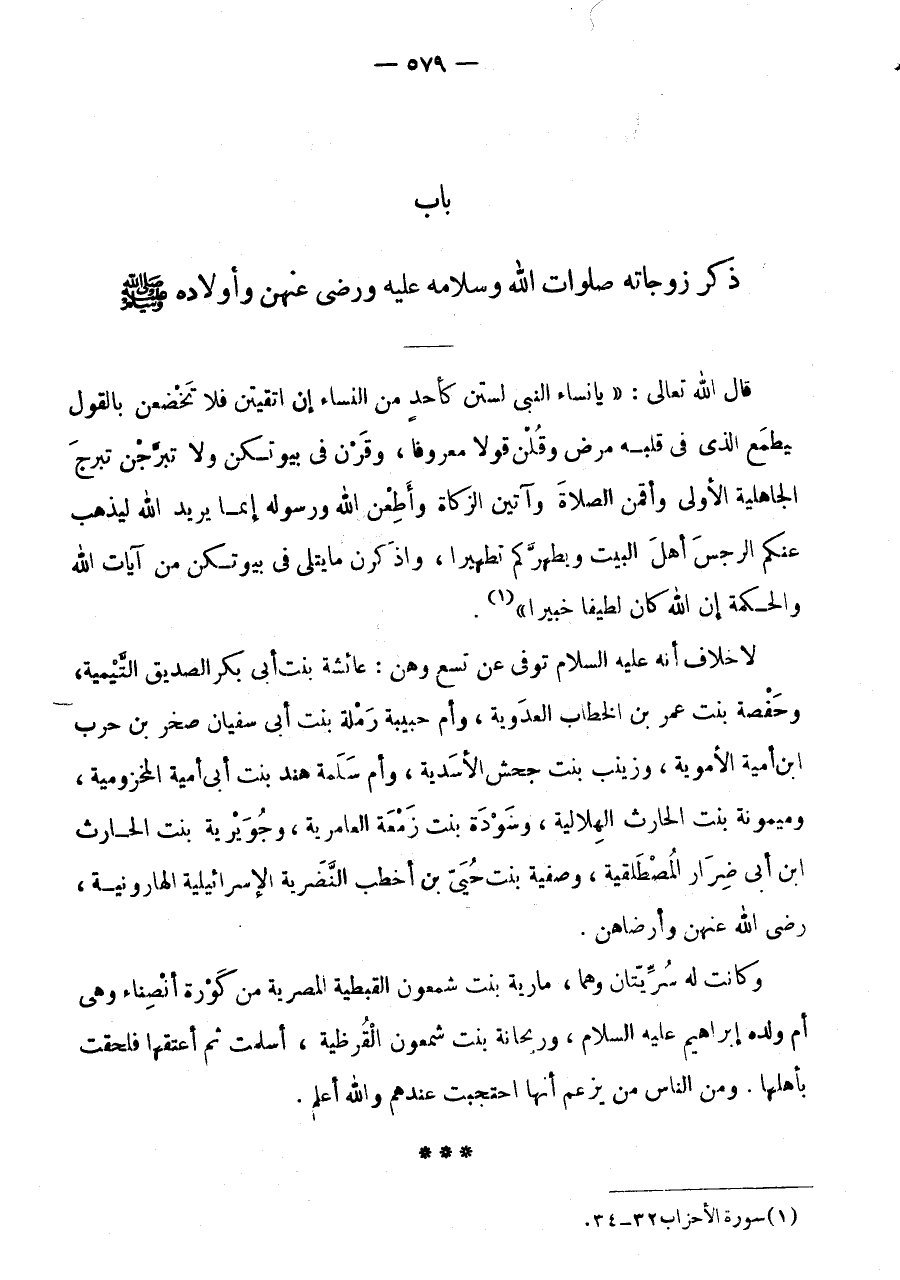 — ٥٧٩ —
باب
ذكر زوجاته صلوات الله وسلامه عليه ورضى عنهن وأولاده ﷺ
قال الله تعالى : « يانساء النبى لستن كأحدٍ من النساء إن اتقيتن فلا تَخْضعن بالقول
يطمَع الذى فى قلبه مرض وقُلْن قولا معروفا ، وقَرْن فى بيوتكن ولا تبرَّجْن تبرجَ
الجاهلية الأولى وأقمن الصلاةَ وآتين الزكاة وأَطِعْن الله ورسوله إنما يريد الله ليذهب
عنكم الرجسَ أهلَ البيت ويطهرَّكم تطهيرا ، واذكرن مايتلى فى بيوتكن من آيات الله
والحكمة إن الله كان لطيفا خبيرا»(١) .
لاخلاف أنه عليه السلام توفى عن تسع وهن : عائشة بنت أبى بكر الصديق التَّيْمية،
وحَفْصة بنت عمر بن الخطاب العدَوية ، وأم حبيبة رَمْلة بنت أبى سفيان صخر بن حرب
ابن أمية الأموية ، وزينب بنت جحش الأسَدية ، وأم سَلَمة هند بنت أبى أمية المخزومية ،
وميمونة بنت الحارث الهِلالية ، وسَوْدَة بنت زَمْعَة العامرية ، وجُوَيْرية بنت الحارث
ابن أبى ضِرَار المُصْطَلقية ، وصفية بنت حُيَىّ بن أخطب النَّضَرية الإسرائيلية الهارونية ،
رضى الله عنهن وأرضاهن .
وكانت له سُرِّيّتان وهما ، مارية بنت شمعون القبطية المصرية من كَوْرة أنْصِناء وهى
أم ولده إبراهيم عليه السلام ، وريحانة بنت شمعون الْقُرظية ، أسلمت ثم أعتقها فلحقت
بأهلها . ومن الناس من يزعم أنها احتجبت عندهم والله أعلم .
* * *
(١) سورة الأحزاب ٣٢ــ٣٤.